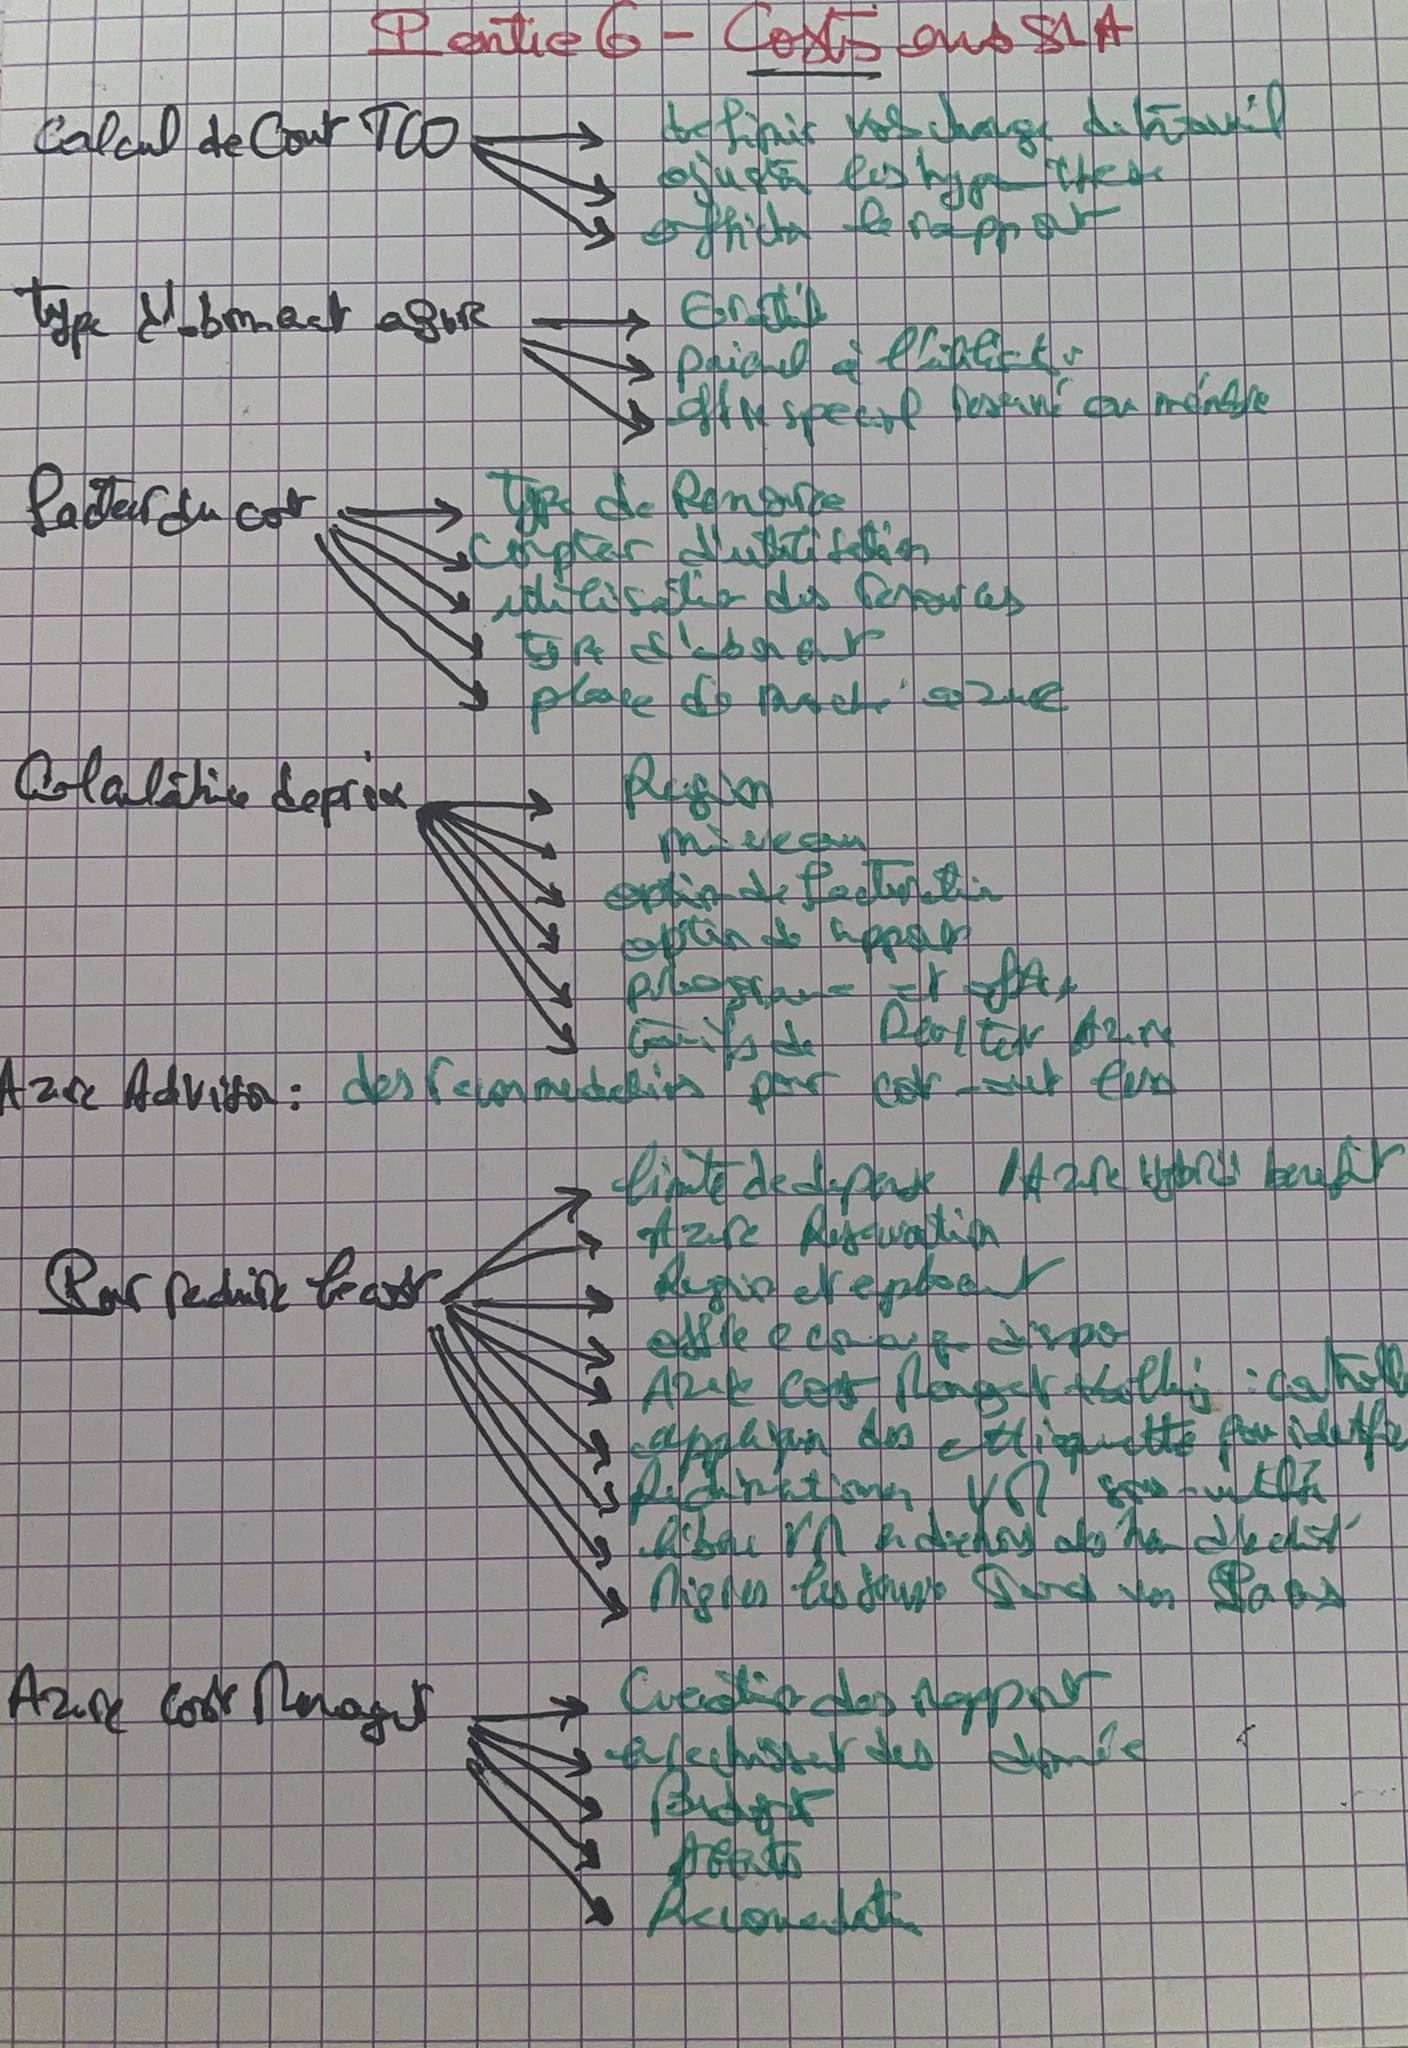 Partie 6 - Costs SLA
Calcul de Cout TCO
definir vos charge de travail
ajuster les hypothese
afficher le rapport
Type d'abonnement azure
Gratuit
paiement à l'utilisation
offre special
Facteur du cout
Type de Ressource
Compteur d'utilisation
utilisation des Ressources
type d'abonnement
place de marché azure
Calculatrice de prix
Region
niveau
option de facturation
option de support
programme et offre
tarifs de DevTest Azure
Azure Advisor: des recommendations pour cost
Pour reduire le cout
limite de depense / Azure Hybrid benefit
Azure Reservation
Region et emplacement
offre economique dispo
Azure Cost Management + billing : controle
appliquer des ettiquette pour identifie
Redimensionner VM sous-utilisé
VM en dehors
Migrer Iaas vers Paas
Azure Cost Managet
Creation des Rapport
enrechissement des donnée
Budget
Alerts
Recomendation